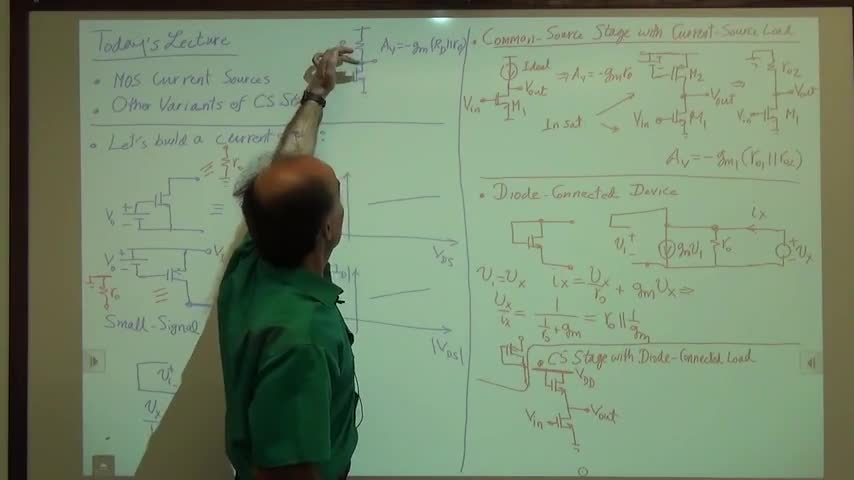 Today's Lecture
• MOS Current Sources
• Other Variants of CS
Av = -gm (RD || ro)
• Let's build a current :
Vo
ro
VDS
Vo
V1
ro
|ID|
|VDS|
Small-Signal
V1
Vx
• Common-Source Stage with Current-Source Load
Ideal
Vout
Vin
M1
⇒ Av = -gm ro
In sat
M2
Vout
Vin
M1
⇒
ro2
Vout
Vin
M1
Av = -gm1 (ro1 || ro2)
• Diode-Connected Device
V1
gmV1
ro
ix
Vx
V1 = Vx ix = Vx/ro + gmVx ⇒
Vx/ix = 1/(1/ro + gm) = ro || 1/gm
• CS Stage with Diode-Connected Load
VDD
Vout
Vin